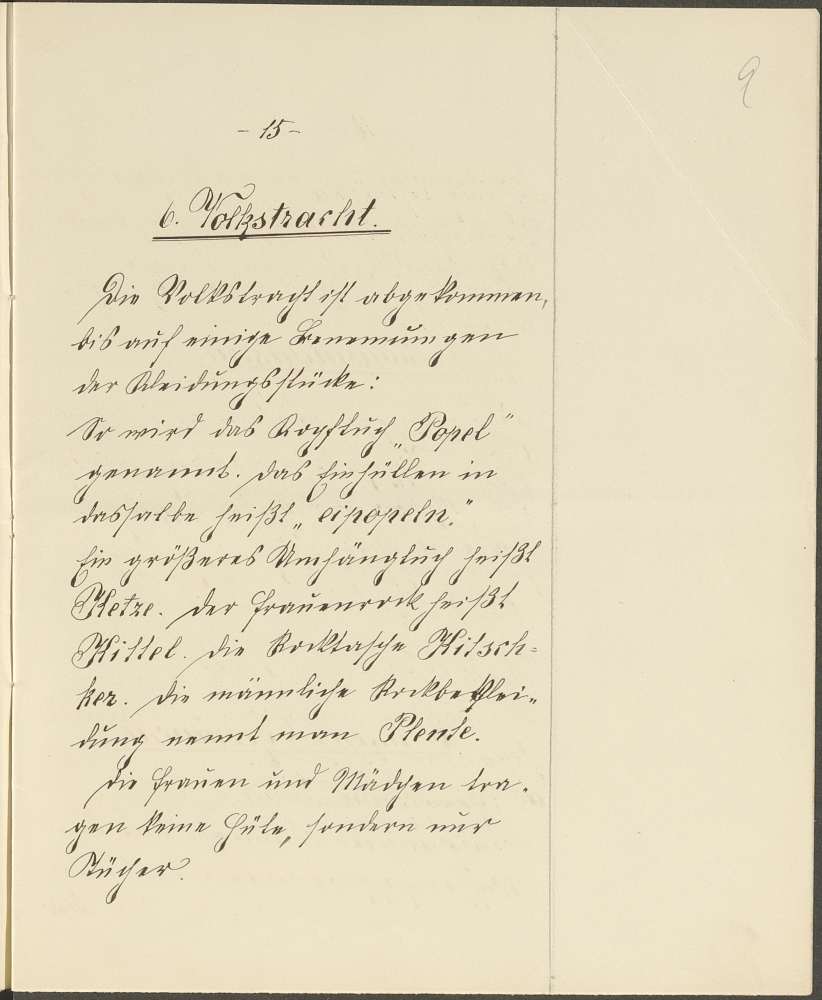 9
- 15 -
6. Volkstracht.
Die Volkstracht ist abgekommen,
bis auf einige Benennungen
der Kleidungsstücke:
So wird das Kopftuch „Popel"
genannt. Das Einhüllen in
dasselbe heißt „eipopeln."
Ein größeres Umhängtuch heißt
Hetze. Der Frauenrock heißt
Kittel. Die Rocktasche Hitsch-
ker. Die männliche Rockbeklei-
dung nennt man Plente.
Die Frauen und Mädchen tra-
gen keine Hüte, sondern nur
Tücher.